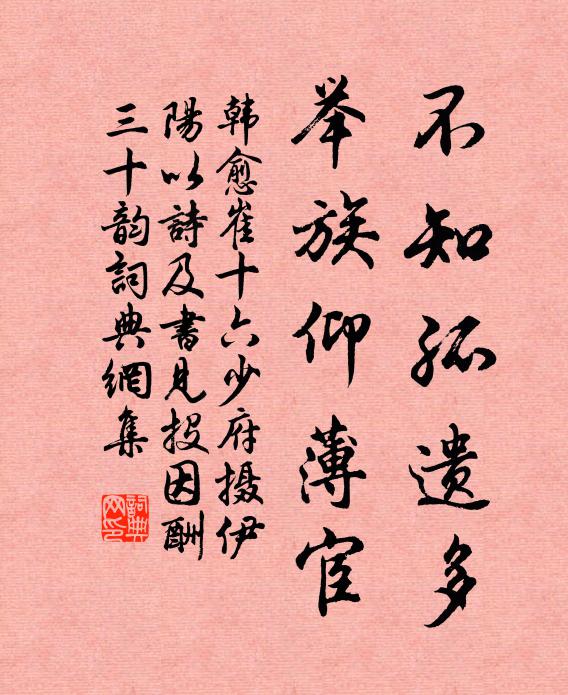 不知孤遗多
举族仰薄宦
韩愈崔十六少府摄伊
陽以詩及書見投因酬
三十韵詞典網集
詞典网印